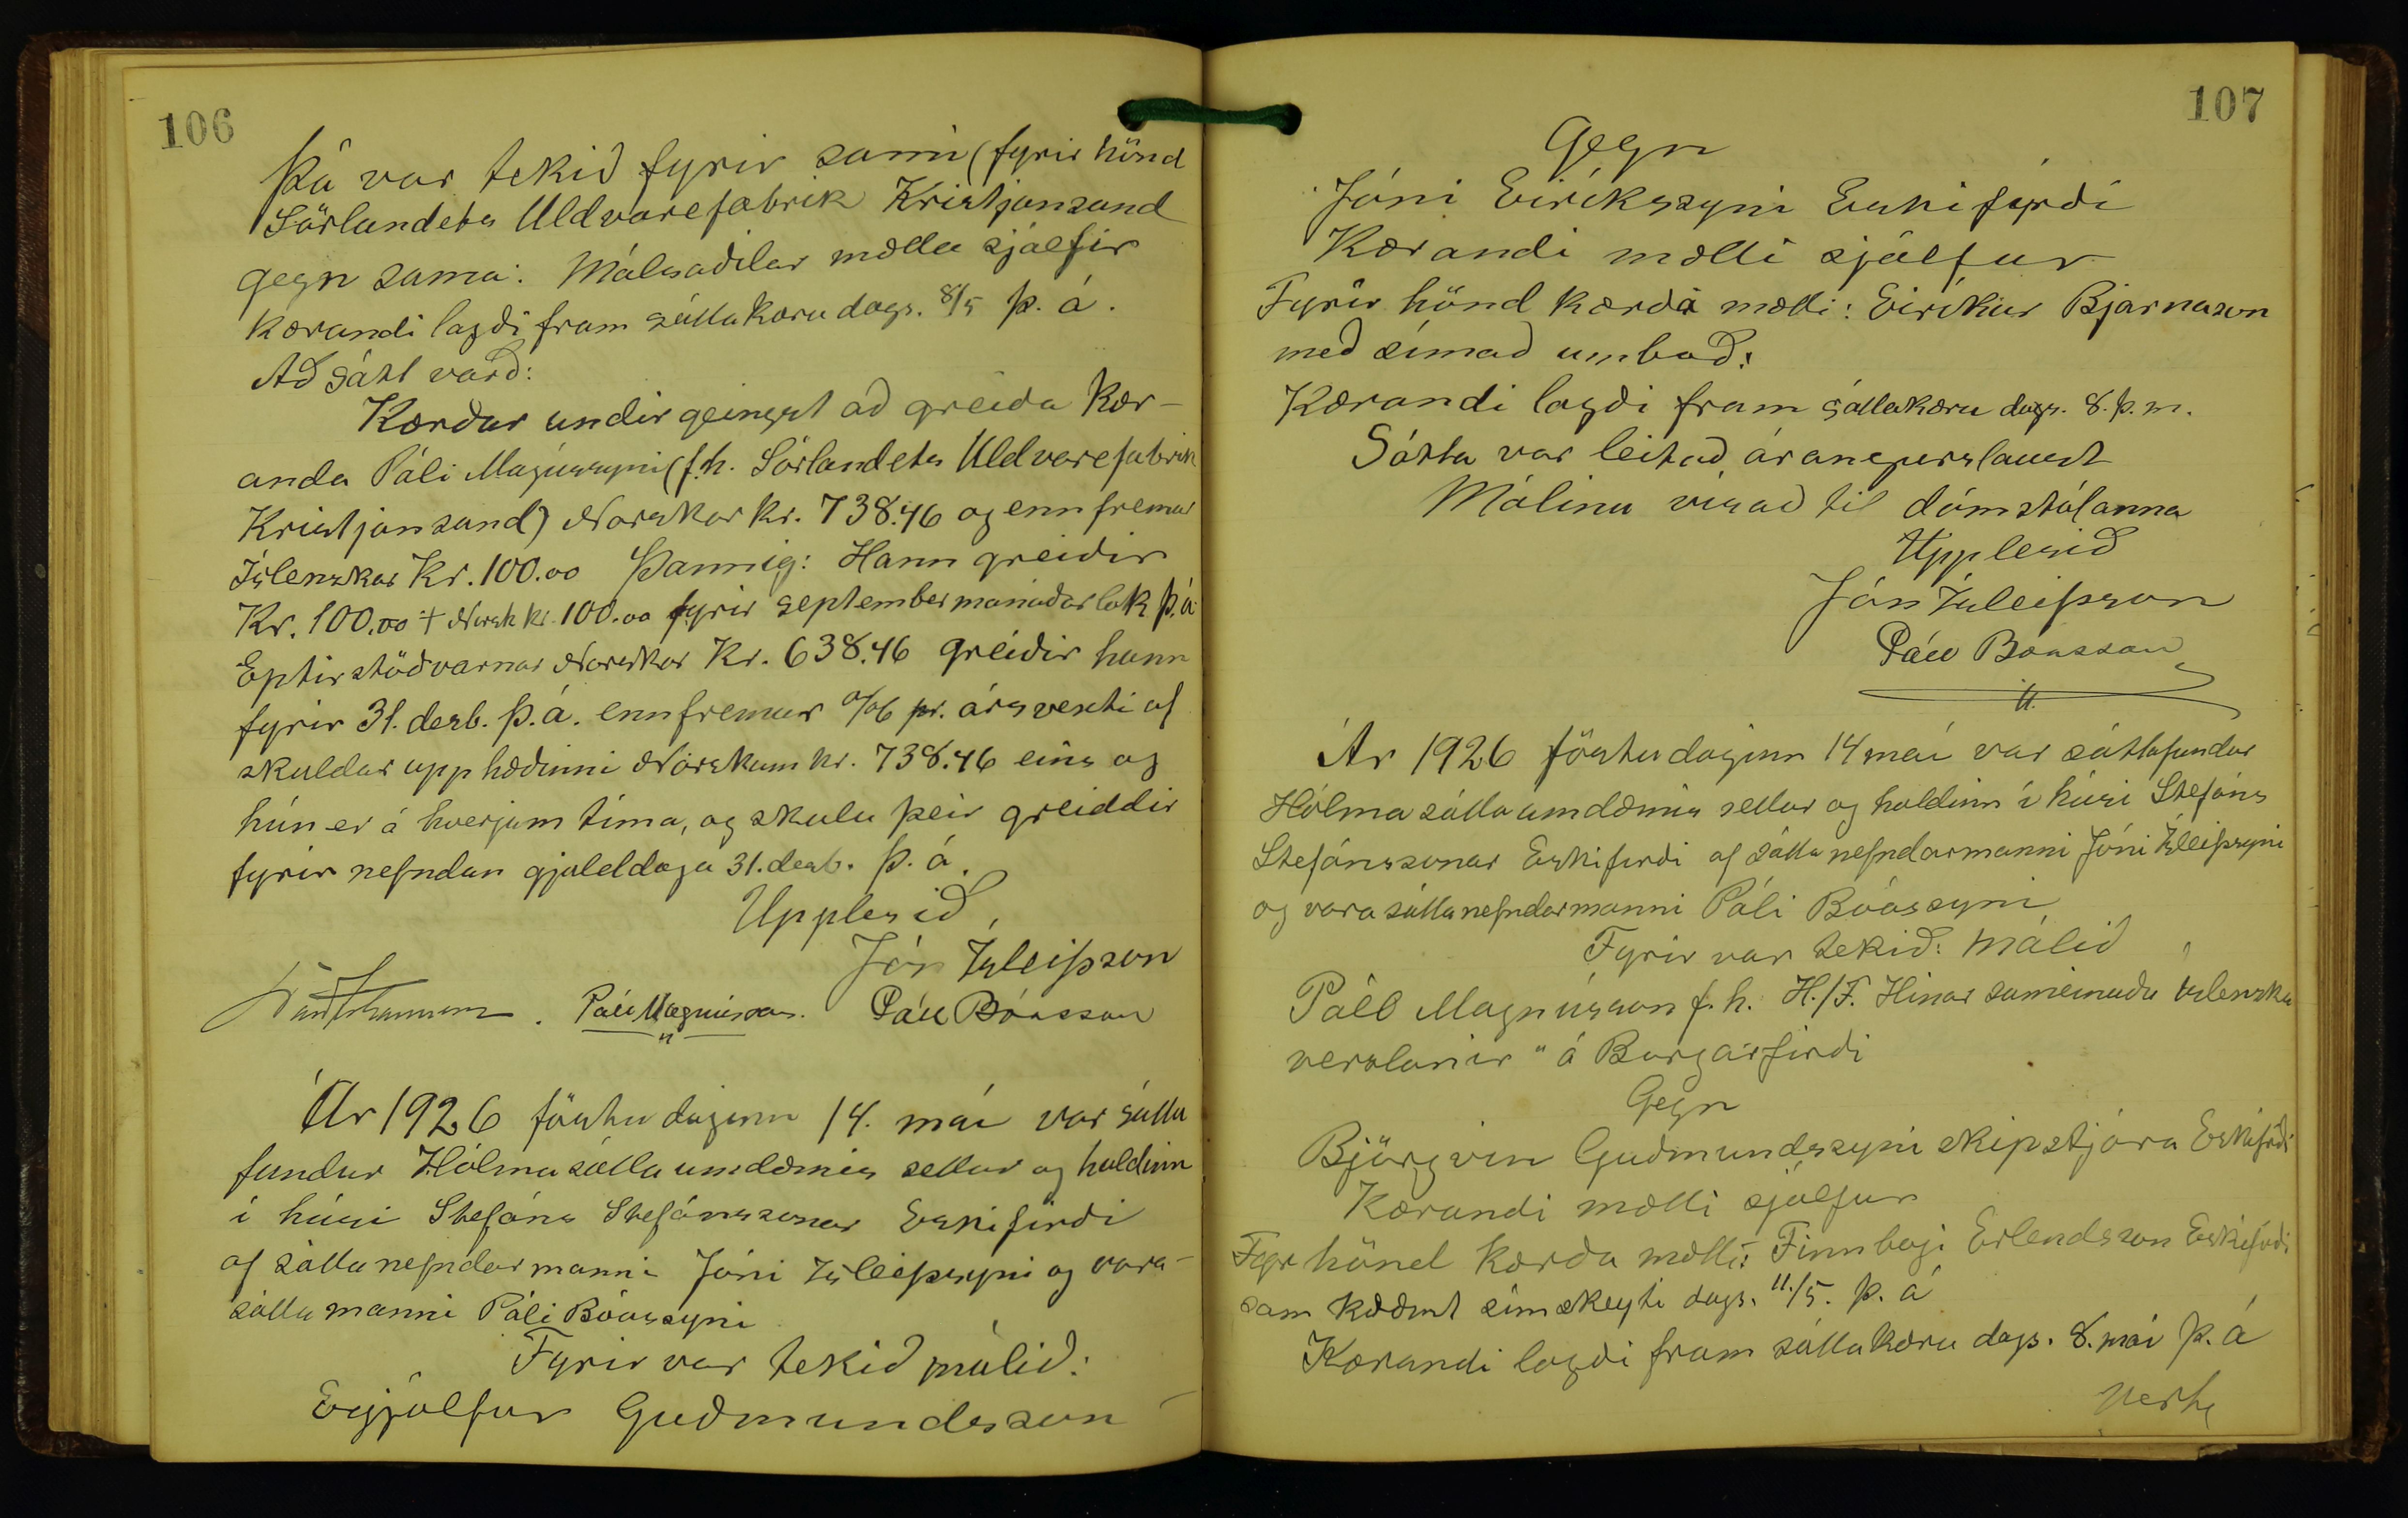 106
Þá var tekið fyrir sami (fyrir hönd
Sörlandets Uldvarefabrik Kristjansand
gegn sama: Málsaðilar mæta sjálfir
Kærandi lagði fram sáttakæru dags. 8/5 þ. á.
Að sátt varð:
Kærður undirgeingst að greiða Kær-
anda Páli Magússyni (f.h. Sörlandets Uldvarefabrik
Kristjansand) Norskar kr. 738.46 og ennfremur
Íslenskar Kr. 100.00 Þannig: Hann greiðir
Kr. 100.00 + Norsk kr. 100.00 fyrir septembermánaðarlok þ.á
Eptirstöðvarnar Norskar Kr. 638.46 greiðir hann
fyrir 31. desb. þ.á. ennfremur 6% pr. ársvexti af
skuldarupphæðinni Norskum kr. 738.46 eins og
hún er á hverjum tíma, og skulu þeir greiddir
fyrir nefndan gjalddaga 31. desb. þ. á.
Upplesið,
Jón Ísleifsson
Páll Magnússon. Páll Bóasson
Ár 1926 föstudaginn 14. maí var sátta
fundur Hólmasáttaumdæmis settur og haldinn
í húsi Stefáns Stefánssonar Eskifirði
af sáttanefndarmanni Jóni Ísleifssyni og vara-
sáttamanni Páli Bóassyni
Fyrir var tekið málið:
Eyjólfur Guðmundsson
107
Gegn
Jóni Eiríkssyni Eskifyrði
Kærandi mætti sjálfur
Fyrir hönd kærða mætti: Eiríkur Bjarnason
með símað umboð:
Kærandi lagði fram sáttakæru dags. 8. þ. m.
Sátta var leitað árangurslaust
Málinu vísað til dómstólanna
Upplesið
Jón Ísleifsson
Páll Bóasson
Ár 1926 föstudaginn 14 maí var sáttafundur
Hólmasáttaumdæmis settur og haldinn í húsi Stefáns
Stefánssonar Eskifirði af sáttanefndarmanni Jóni Ísleifssyni
og varasáttanefndarmanni Páli Bóassyni
Fyrir var tekið: málið
Páll Magnússon f. h. H./F. Hinar sameinuðu íslensku
verslanir" á Borgarfirði
Gegn
Björgvin Guðmundssyni skipstjóra Eskifirði
Kærandi mætti sjálfur
Fyr hönd kærða mætti: Finnbogi Erlendsson Eskifirði
sam kvæmt símskeyti dags. 11./5. þ. á
Kærandi lagði fram sáttakæru dags. 8. maí þ. á